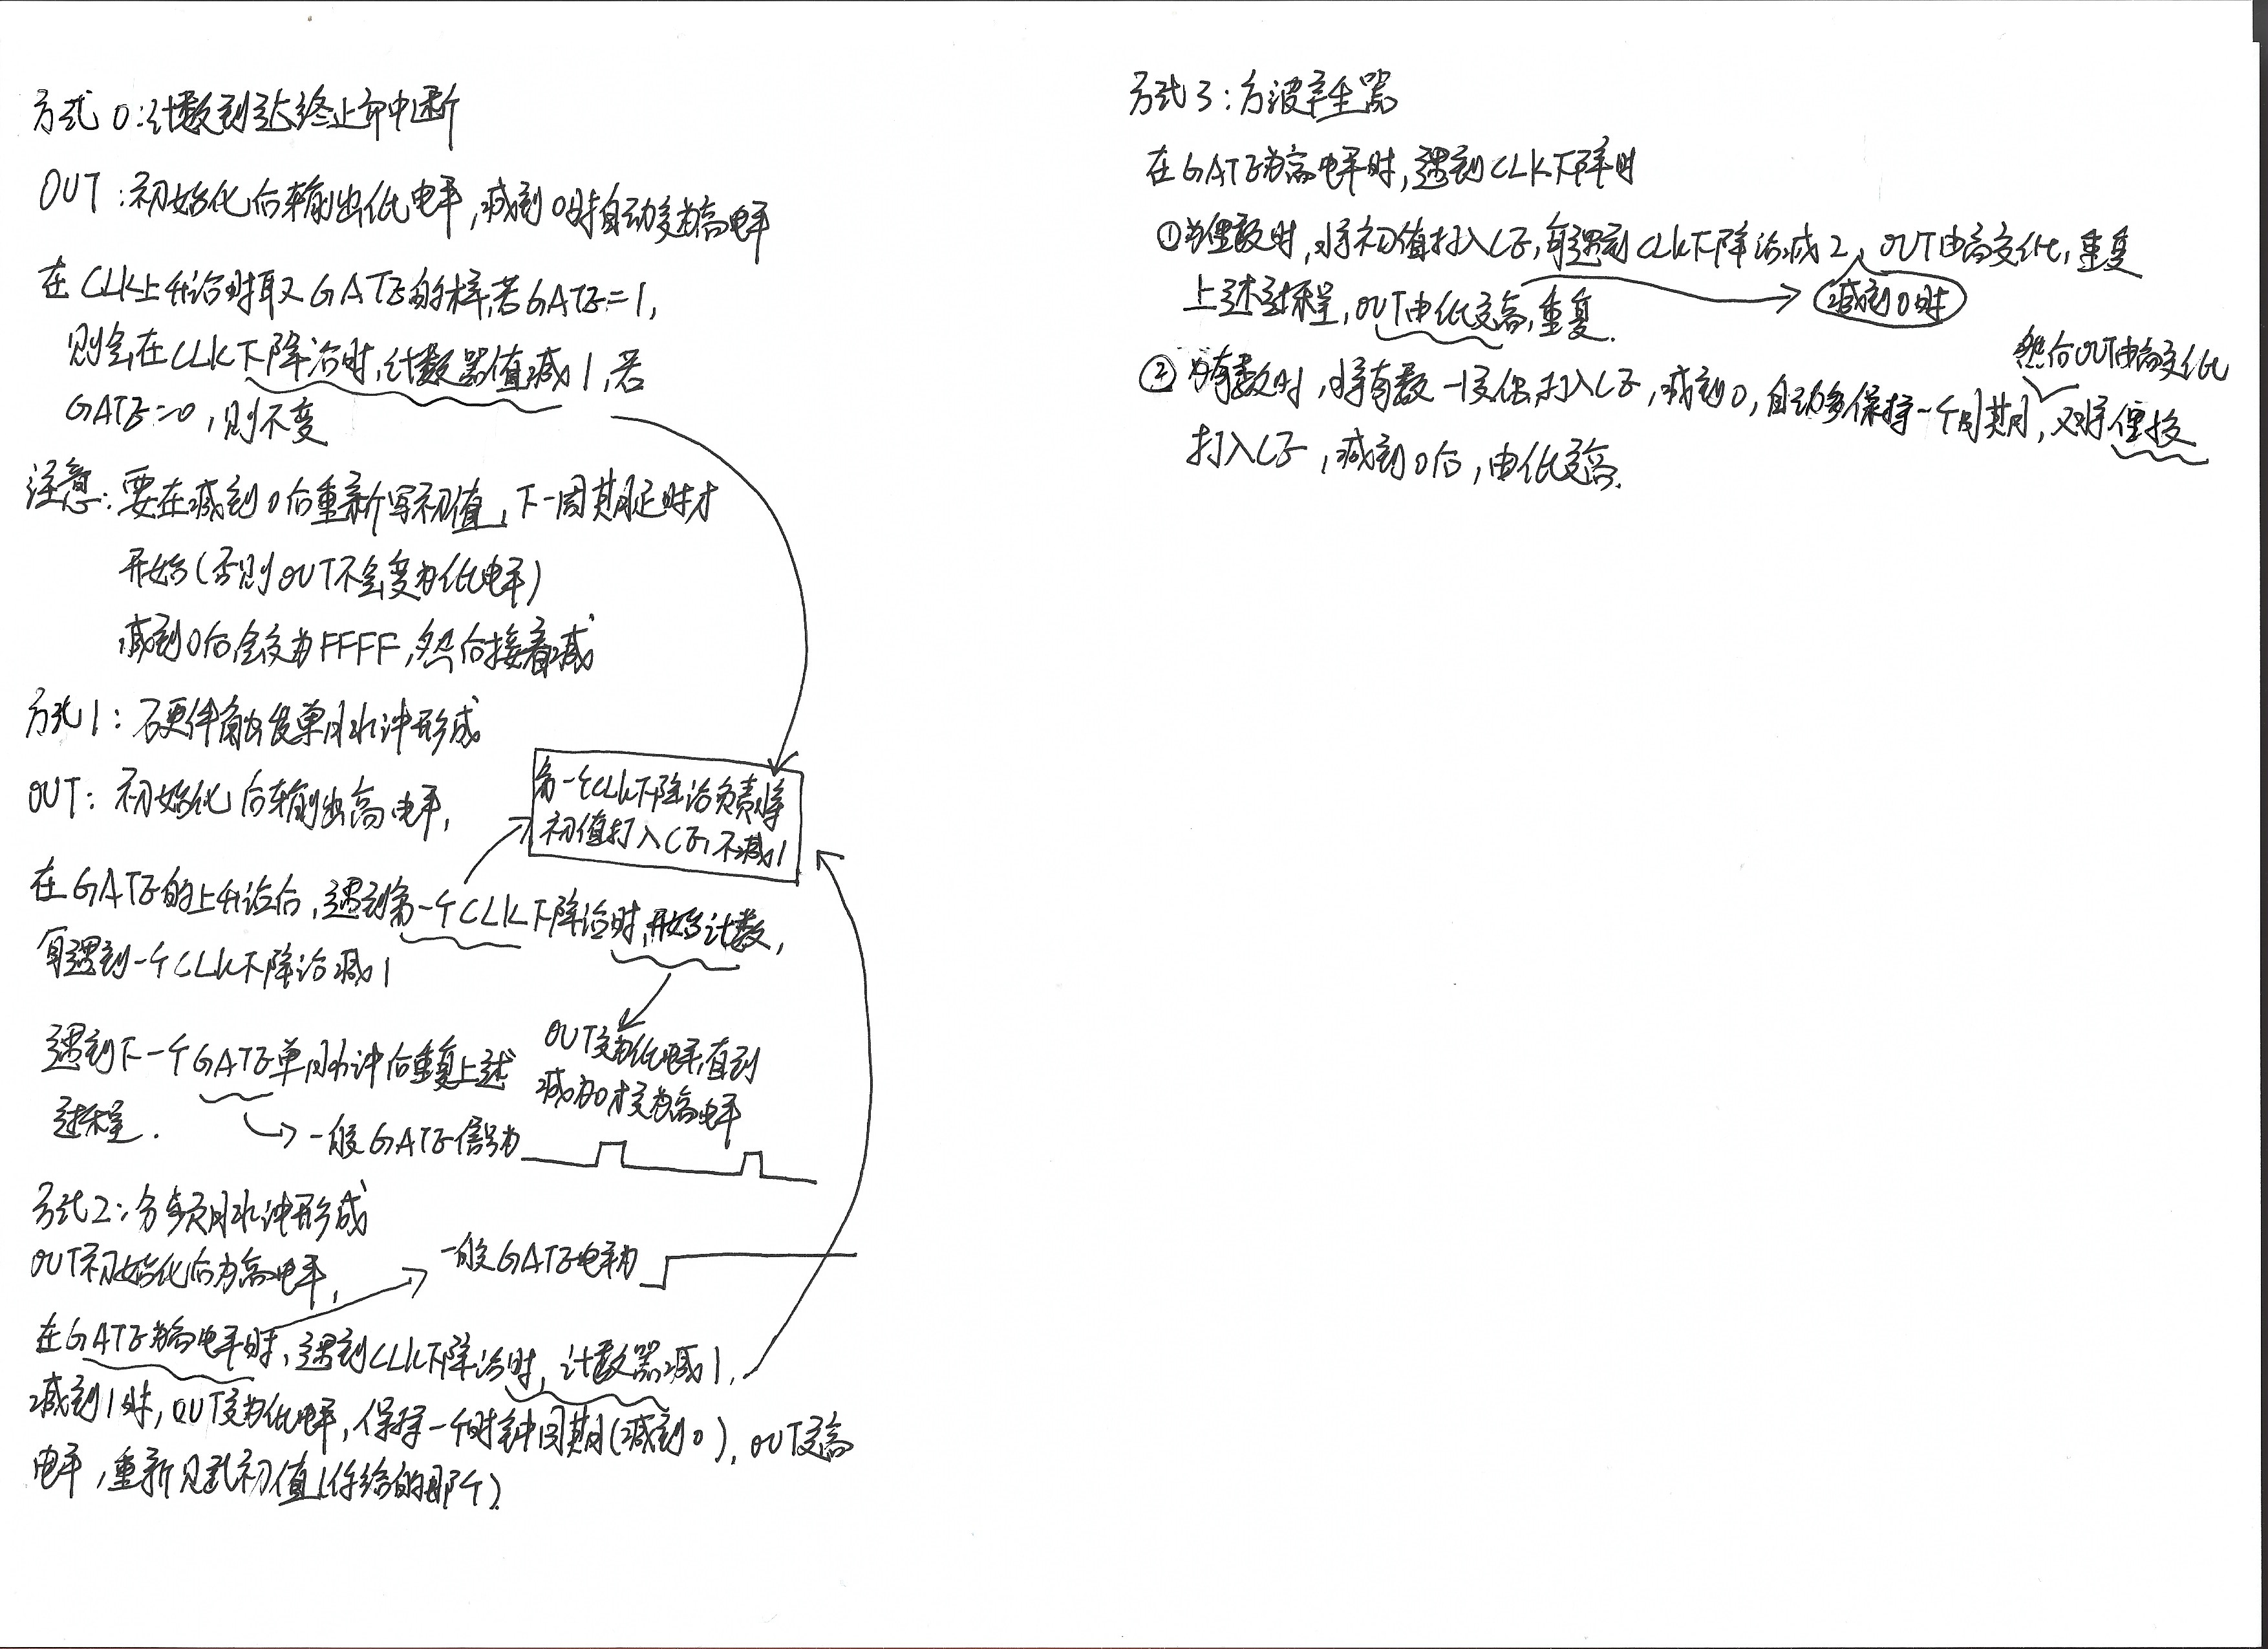 方式0:计数到达终止命中断
OUT:初始化后输出低电平,减到0时自动变为高电平
在CLK上升沿时取GATE的样,若GATE=1,
则会在CLK下降沿时,计数器值减1,若
GATE=0,则不变
注意:要在减到0后重新写初值,下一周期延时才
开始(否则OUT不会变为低电平)
减到0后会变为FFFF,然后接着减
方式1:硬件触发单脉冲形成
OUT:初始化后输出高电平,
第一个CLK下降沿负责将
初值打入CE,不减1
在GATE的上升沿后,遇到第一个CLK下降沿时,开始计数,
每遇到一个CLK下降沿减1
OUT变为低电平,直到
减为0才变为高电平
遇到下一个GATE单脉冲后重复上述
过程.
一般GATE信号为
方式2:分频脉冲形成
OUT初始化后为高电平,
一般GATE电平为
在GATE为高电平时,遇到CLK下降沿时,计数器减1,
减到1时,OUT变为低电平,保持一个时钟周期(减到0),OUT变高
电平,重新赋初值(你给的那个).
方式3:方波产生器
在GATE为高电平时,遇到CLK下降时
①为偶数时,将初值打入CE,每遇到CLK下降沿减2,OUT由高变低,重复
上述过程,OUT由低变高,重复.
减到0时
然后OUT由高变低
②为奇数时,将奇数-1变偶,打入CE,减到0,自动多保持一个周期,又将偶数
打入CE,减到0后,由低变高.